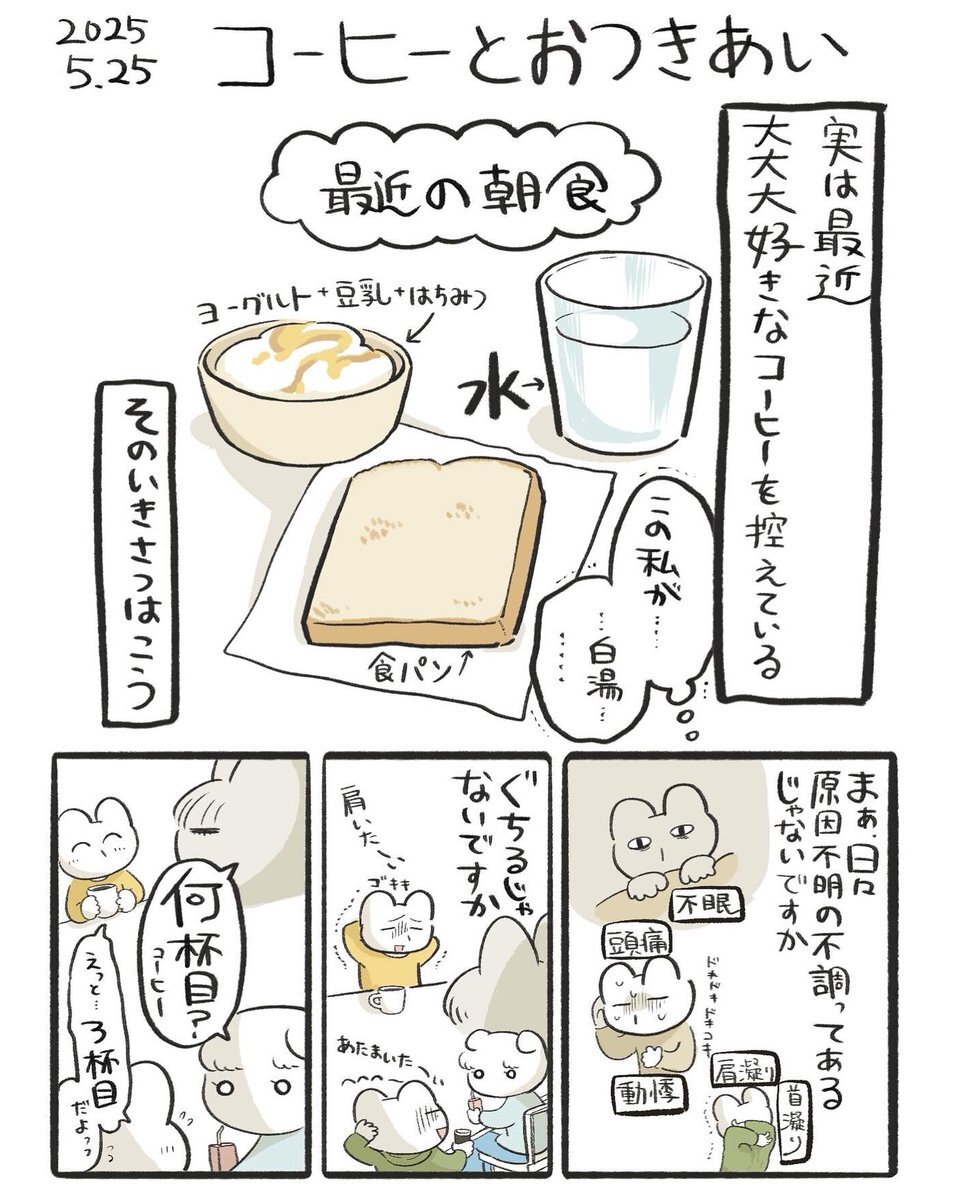 2025
5.25
コーヒーとおつきあい
実は最近
大大大好きなコーヒーを控えている
最近の朝食
ヨーグルト+豆乳+はちみつ
水→
食パン
この私が…
…白湯…
……
そのいきさつはこう
まぁ、日々
原因不明の不調ってある
じゃないですか
不眠
頭痛
ドキドキドキドキ
動悸
肩凝り
首凝り
ぐちるじゃ
ないですか
肩いたい
ゴキキ
あたまいた〜
何杯目?
コーヒー
えっと…3杯目
だよっ